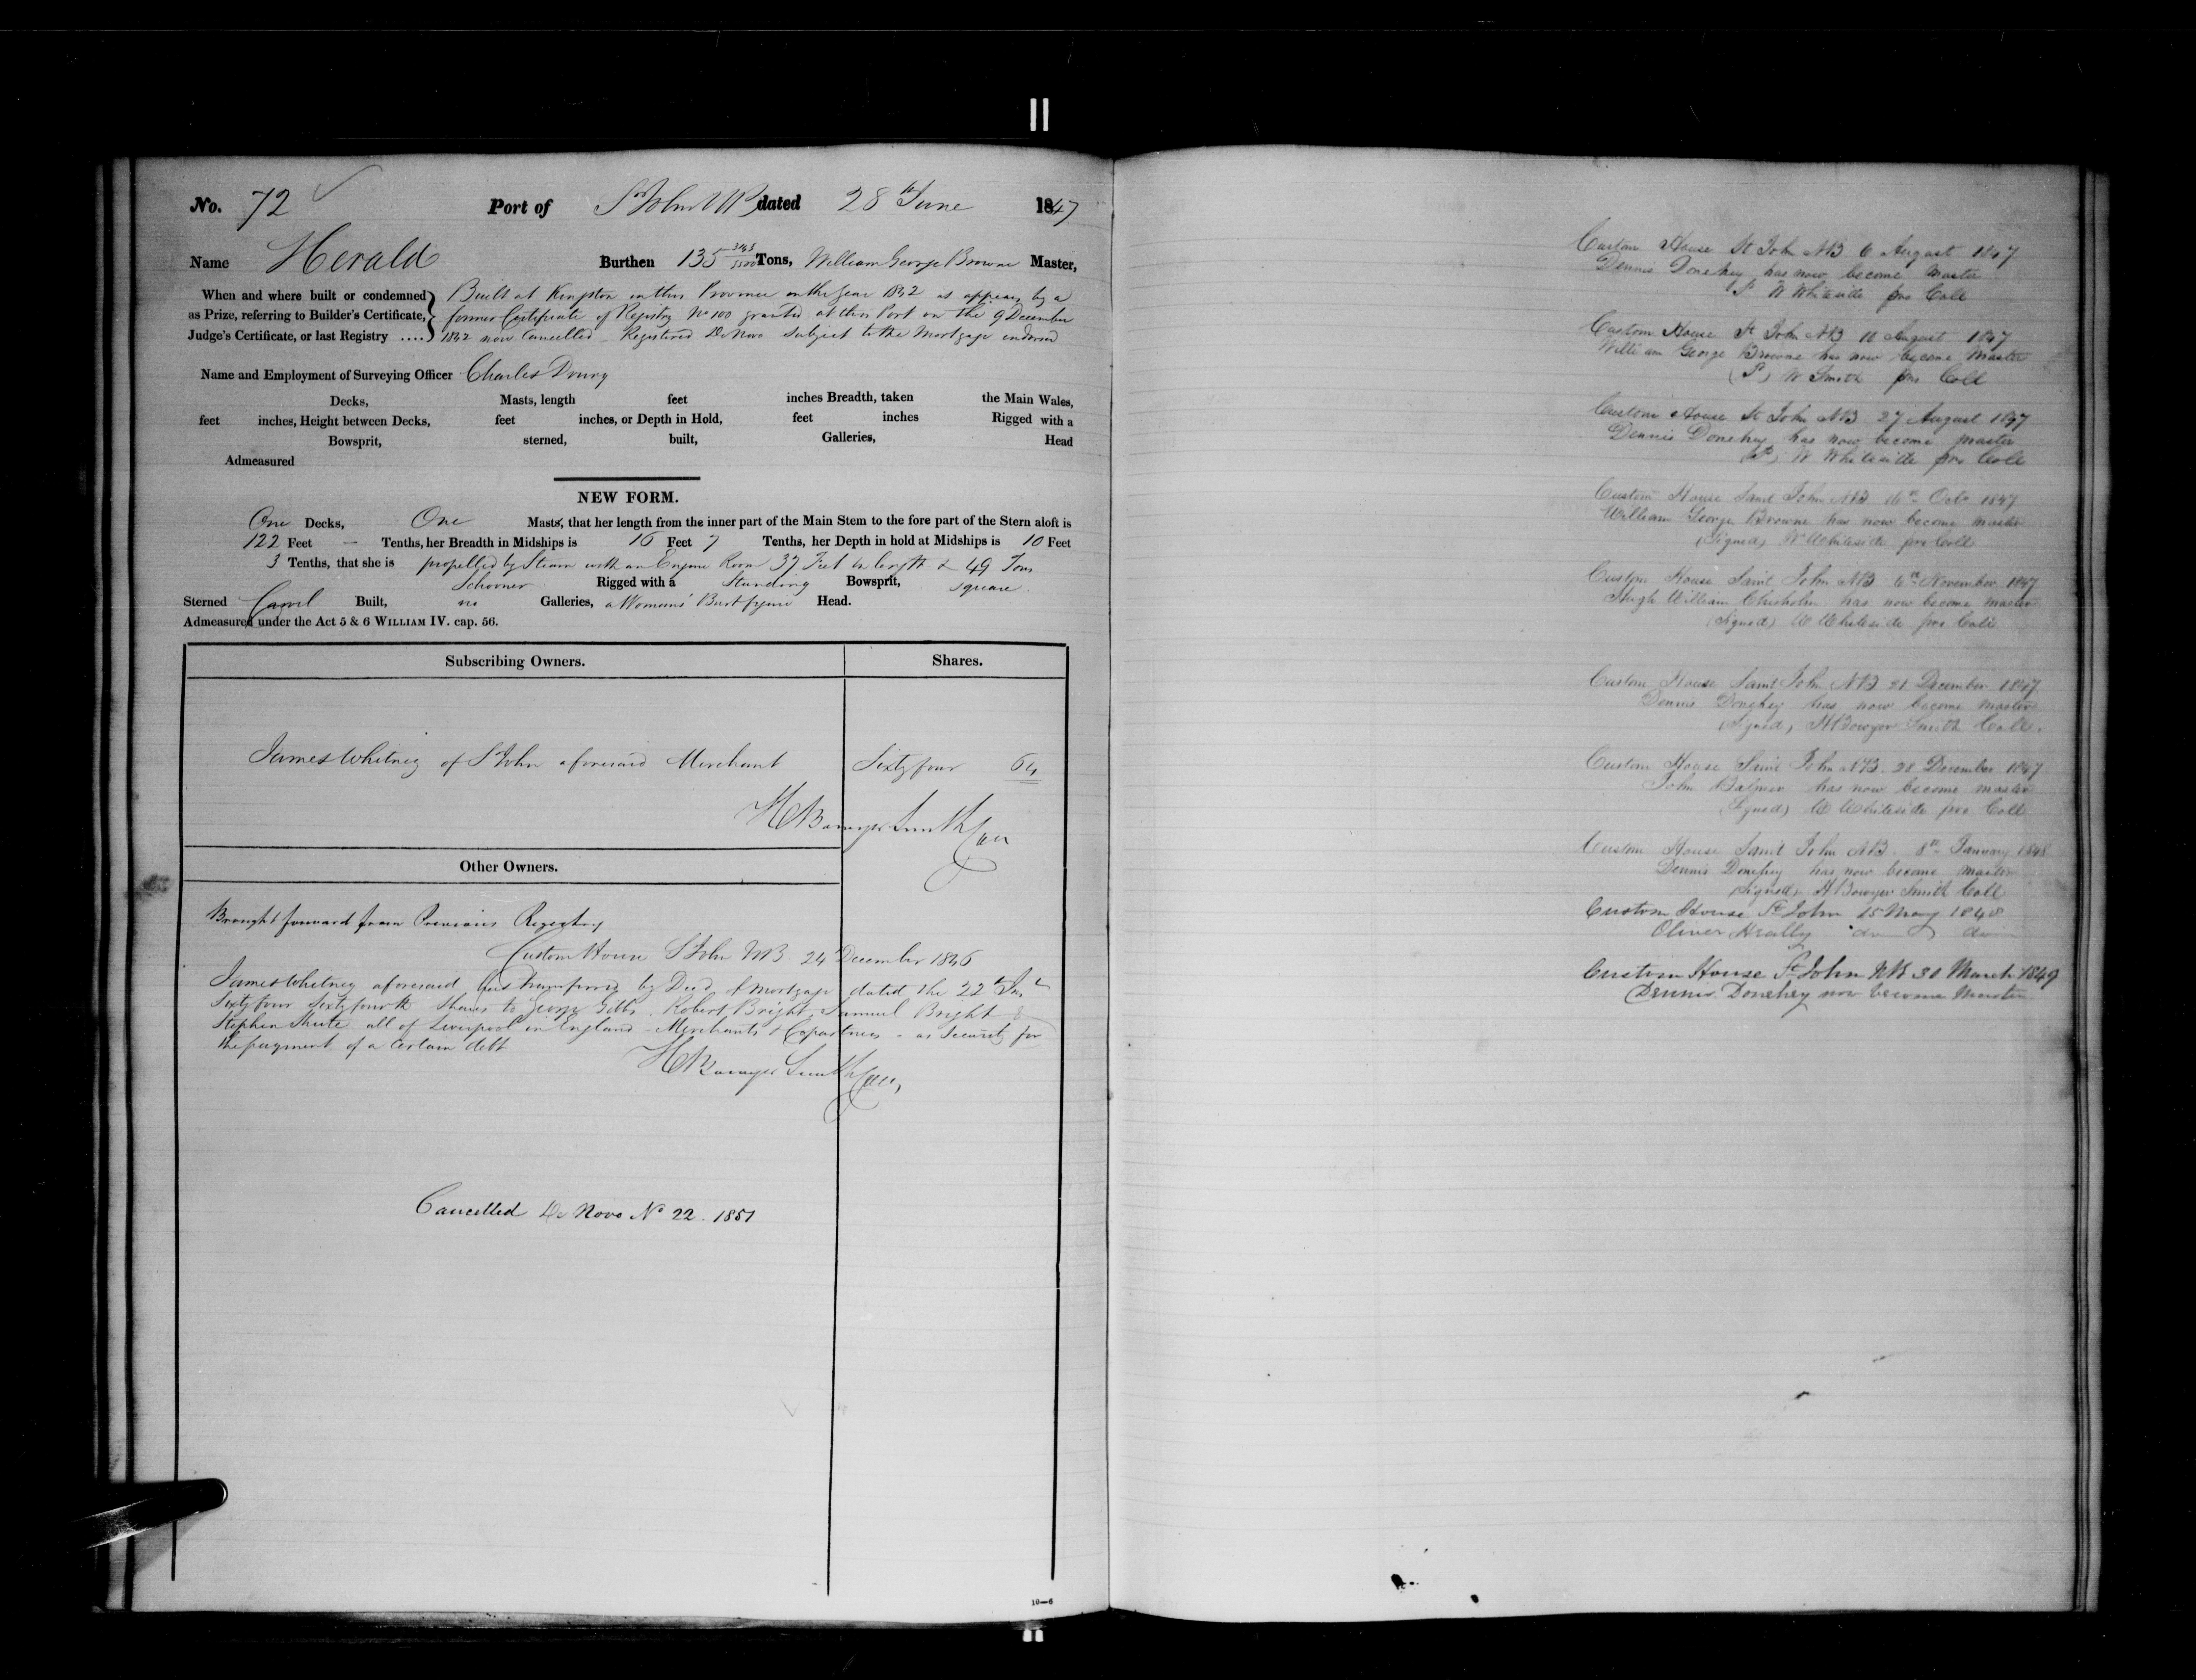 No. 72 Port of St John NB dated 28th June 1847
Name Herald Burthen 135 Tons, William George Browne Master,
When and where built or condemned as Prize, referring to Builder's Certificate, Judge's Certificate, or last Registry ....
Built at Kingston in this Province in the Year 1842 as appears by a
former Certificate of Registry No 100 granted at this Port on the 9 December
1842 now Cancelled Registered De Novo Subject to the Mortgage endorsed
Name and Employment of Surveying Officer Charles Drury
Decks, Masts, length feet inches Breadth, taken the Main Wales,
feet inches, Height between Decks, feet inches, or Depth in Hold, feet inches Rigged with a
Bowsprit, sterned, built, Galleries, Head
Admeasured
NEW FORM.
One Decks, One Masts, that her length from the inner part of the Main Stem to the fore part of the Stern aloft is
122 Feet — Tenths, her Breadth in Midships is 16 Feet 7 Tenths, her Depth in hold at Midships is 10 Feet
3 Tenths, that she is propelled by Steam with an Engine Room 37 Feet in length & 49 Tons
Schooner Rigged with a Standing Bowsprit, square
Sterned Carvel Built, no Galleries, a Womans' Bust figure Head.
Admeasured under the Act 5 & 6 WILLIAM IV. cap. 56.
Subscribing Owners. Shares.
James Whitney of St John aforesaid Merchant Sixty four 64
H Bowyer Smith Coll
Other Owners.
Brought forward from Previous Registry
Custom House St John NB 24 December 1846
James Whitney aforesaid has transferred by Deed of Mortgage dated the 22nd Inst
Sixty four Sixty fourth Shares to George Gibbs, Robert Bright, Samuel Bright &
Stephen Shute all of Liverpool in England - Merchants & Copartners - as Security for
the payment of a certain debt
H Bowyer Smith Coll,
Cancelled De Novo No 22. 1851
10—6
Custom House St John NB 6 August 1847
Dennis Donehey has now become Master
W Whiteside pro Coll
Custom House St John NB 10 August 1847
William George Browne has now become Master
W Smith pro Coll
Custom House St John NB 27 August 1847
Dennis Donehey has now become master
W Whiteside pro Coll
Custom House Saint John NB 16th Octo 1847
William George Browne has now become master
(Signed) W Whiteside pro Coll
Custom House Saint John NB 6th November 1847
Hugh William Chisholm has now become master
(Signed) W Whiteside pro Coll
Custom House Saint John NB 21 December 1847
Dennis Donehey has now become master
(Signed) H Bowyer Smith Coll.
Custom House Saint John NB. 28 December 1847
John has now become master
(Signed) W Whiteside pro Coll
Custom House Saint John NB. 8th January 1848
Dennis Donehey has now become master
(Signed) H Bowyer Smith Coll
Custom House St John 15 May 1848
Oliver Heally do do
Custom House St John NB 30 March 1849
Dennis Donehey now become Master